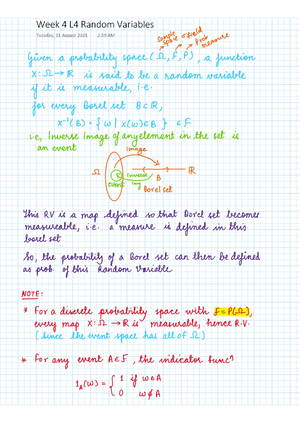 Week 4 L4 Random Variables
Tuesday, 31 August 2021 2:59 AM
sample space σ-field prob measure
Given a probability space (Ω, F, P), a function
X: Ω → R is said to be a random variable
if it is measurable, i.e.
for every Borel set B ∈ R,
X⁻¹(B) = { ω | X(ω) ∈ B } ∈ F
i.e, Inverse Image of any element in the set is
an event
Image
Ω R
Event Inverse Img B
Borel set
This RV is a map defined so that Borel set becomes
measureable, i.e. a measure is defined in this
borel set
So, the probability of a Borel set can then be defined
as prob. of this Random Variable
NOTE:
* For a discrete probability space with F = P(Ω),
every map X: Ω → R is measurable, hence R.V.
(since the event space has all of Ω)
* For any event A ∈ F, the indicator funcⁿ
1_A(ω) = { 1 if ω ∈ A
0 ω ∉ A